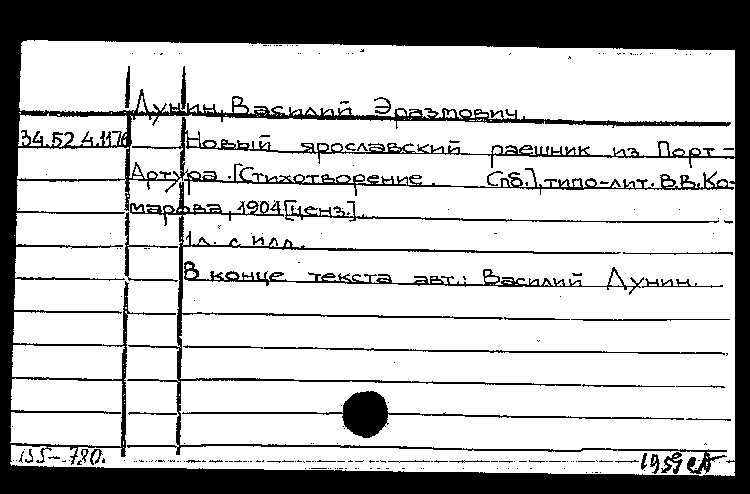 Лунин, Василий Эразмович.
34.52.4.1176 Новый ярославский раешник из Порт-
Артура. [Стихотворение. Спб.], типо-лит. В.В. Ко-
марова, 1904 [ценз.].
1л. с илл.
В конце текста авт.: Василий Лунин.
155-780.